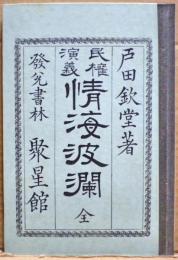 戸田欽堂著
民権
演義
情海波瀾
全
發兌書林 聚星館